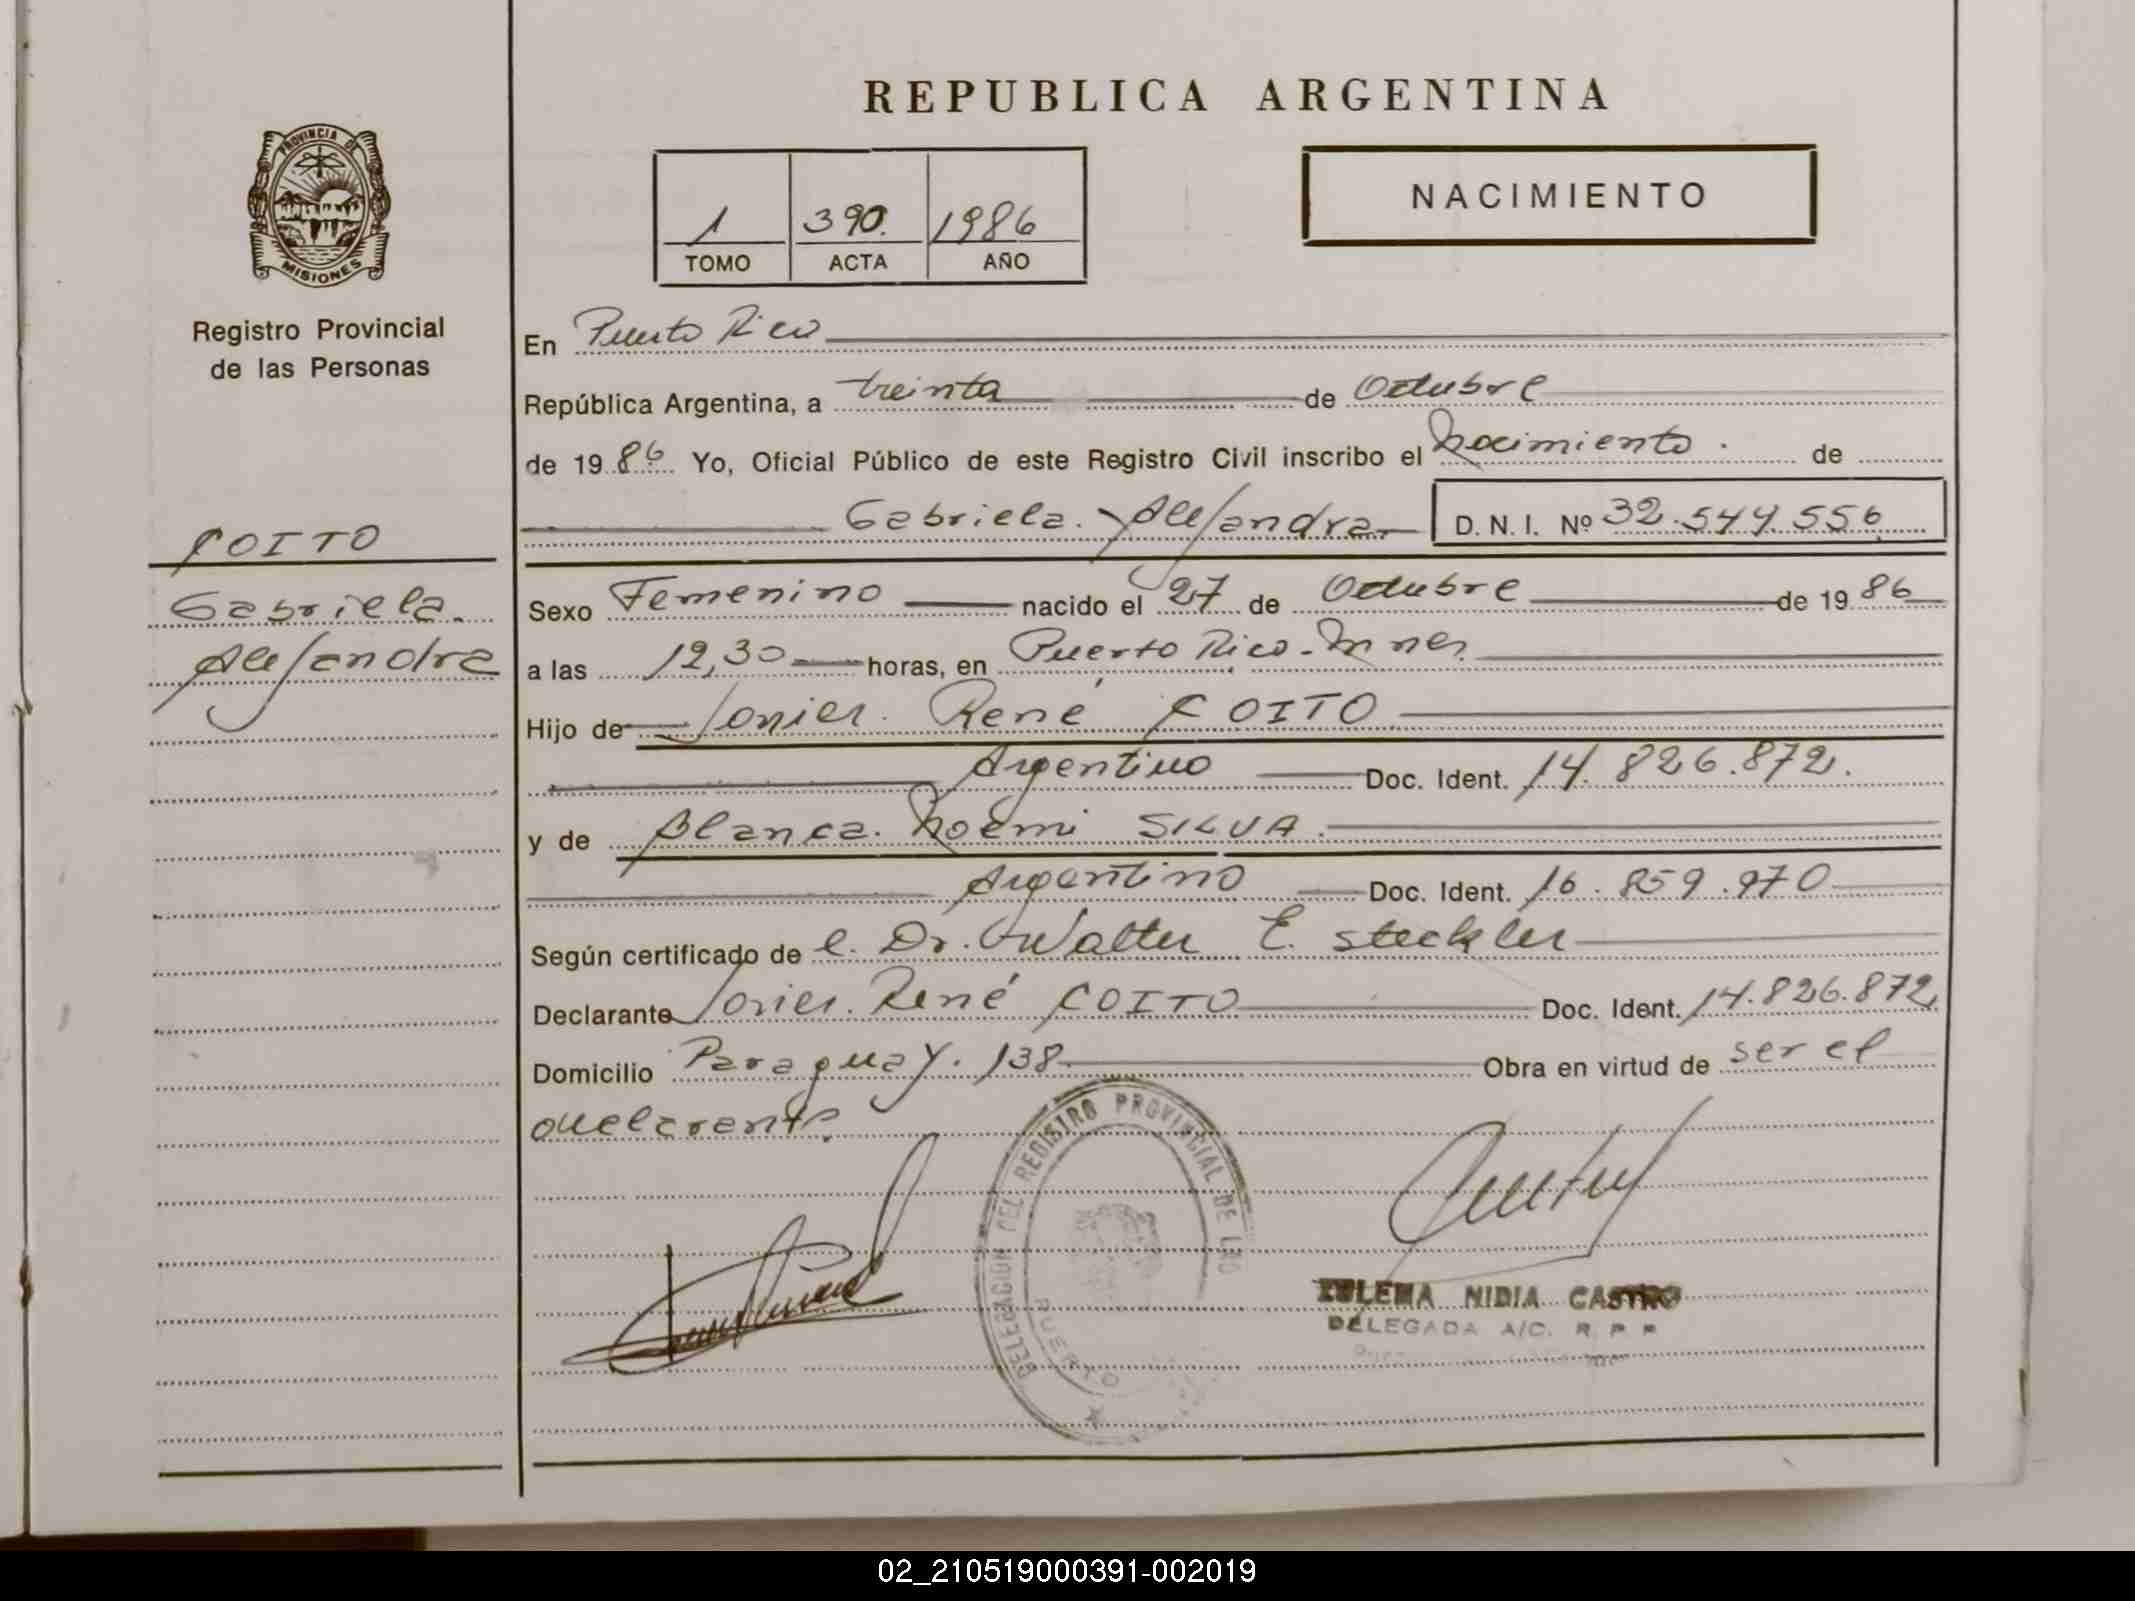 REPUBLICA ARGENTINA
PROVINCIA DE
MISIONES
Registro Provincial
de las Personas
1 390. 1986
TOMO ACTA AÑO
NACIMIENTO
COITO
Gabriela.
Alejandra
En Puerto Rico
República Argentina, a treinta de Octubre
de 1986 Yo, Oficial Público de este Registro Civil inscribo el Nacimiento. de
Gabriela. Alejandra D. N. I. Nº 32.544.556
Sexo Femenino nacido el 27 de Octubre de 1986
a las 12,30 horas, en Puerto Rico - Mnes.
Hijo de Javier. René COITO
Argentino Doc. Ident. 14.826.872.
y de Blanca. Noemi SILVA.
Argentino Doc. Ident. 16.859.970
Según certificado de e. Dr. Walter E. Steckler
Declarante Javier. René COITO Doc. Ident. 14.826.872
Domicilio Paraguay. 138 Obra en virtud de ser el
declarante
DELEGACION DEL REGISTRO PROVINCIAL DE LAS
PUERTO
ZULEMA NIDIA CASTRO
DELEGADA A/C. R P P
02_210519000391-002019